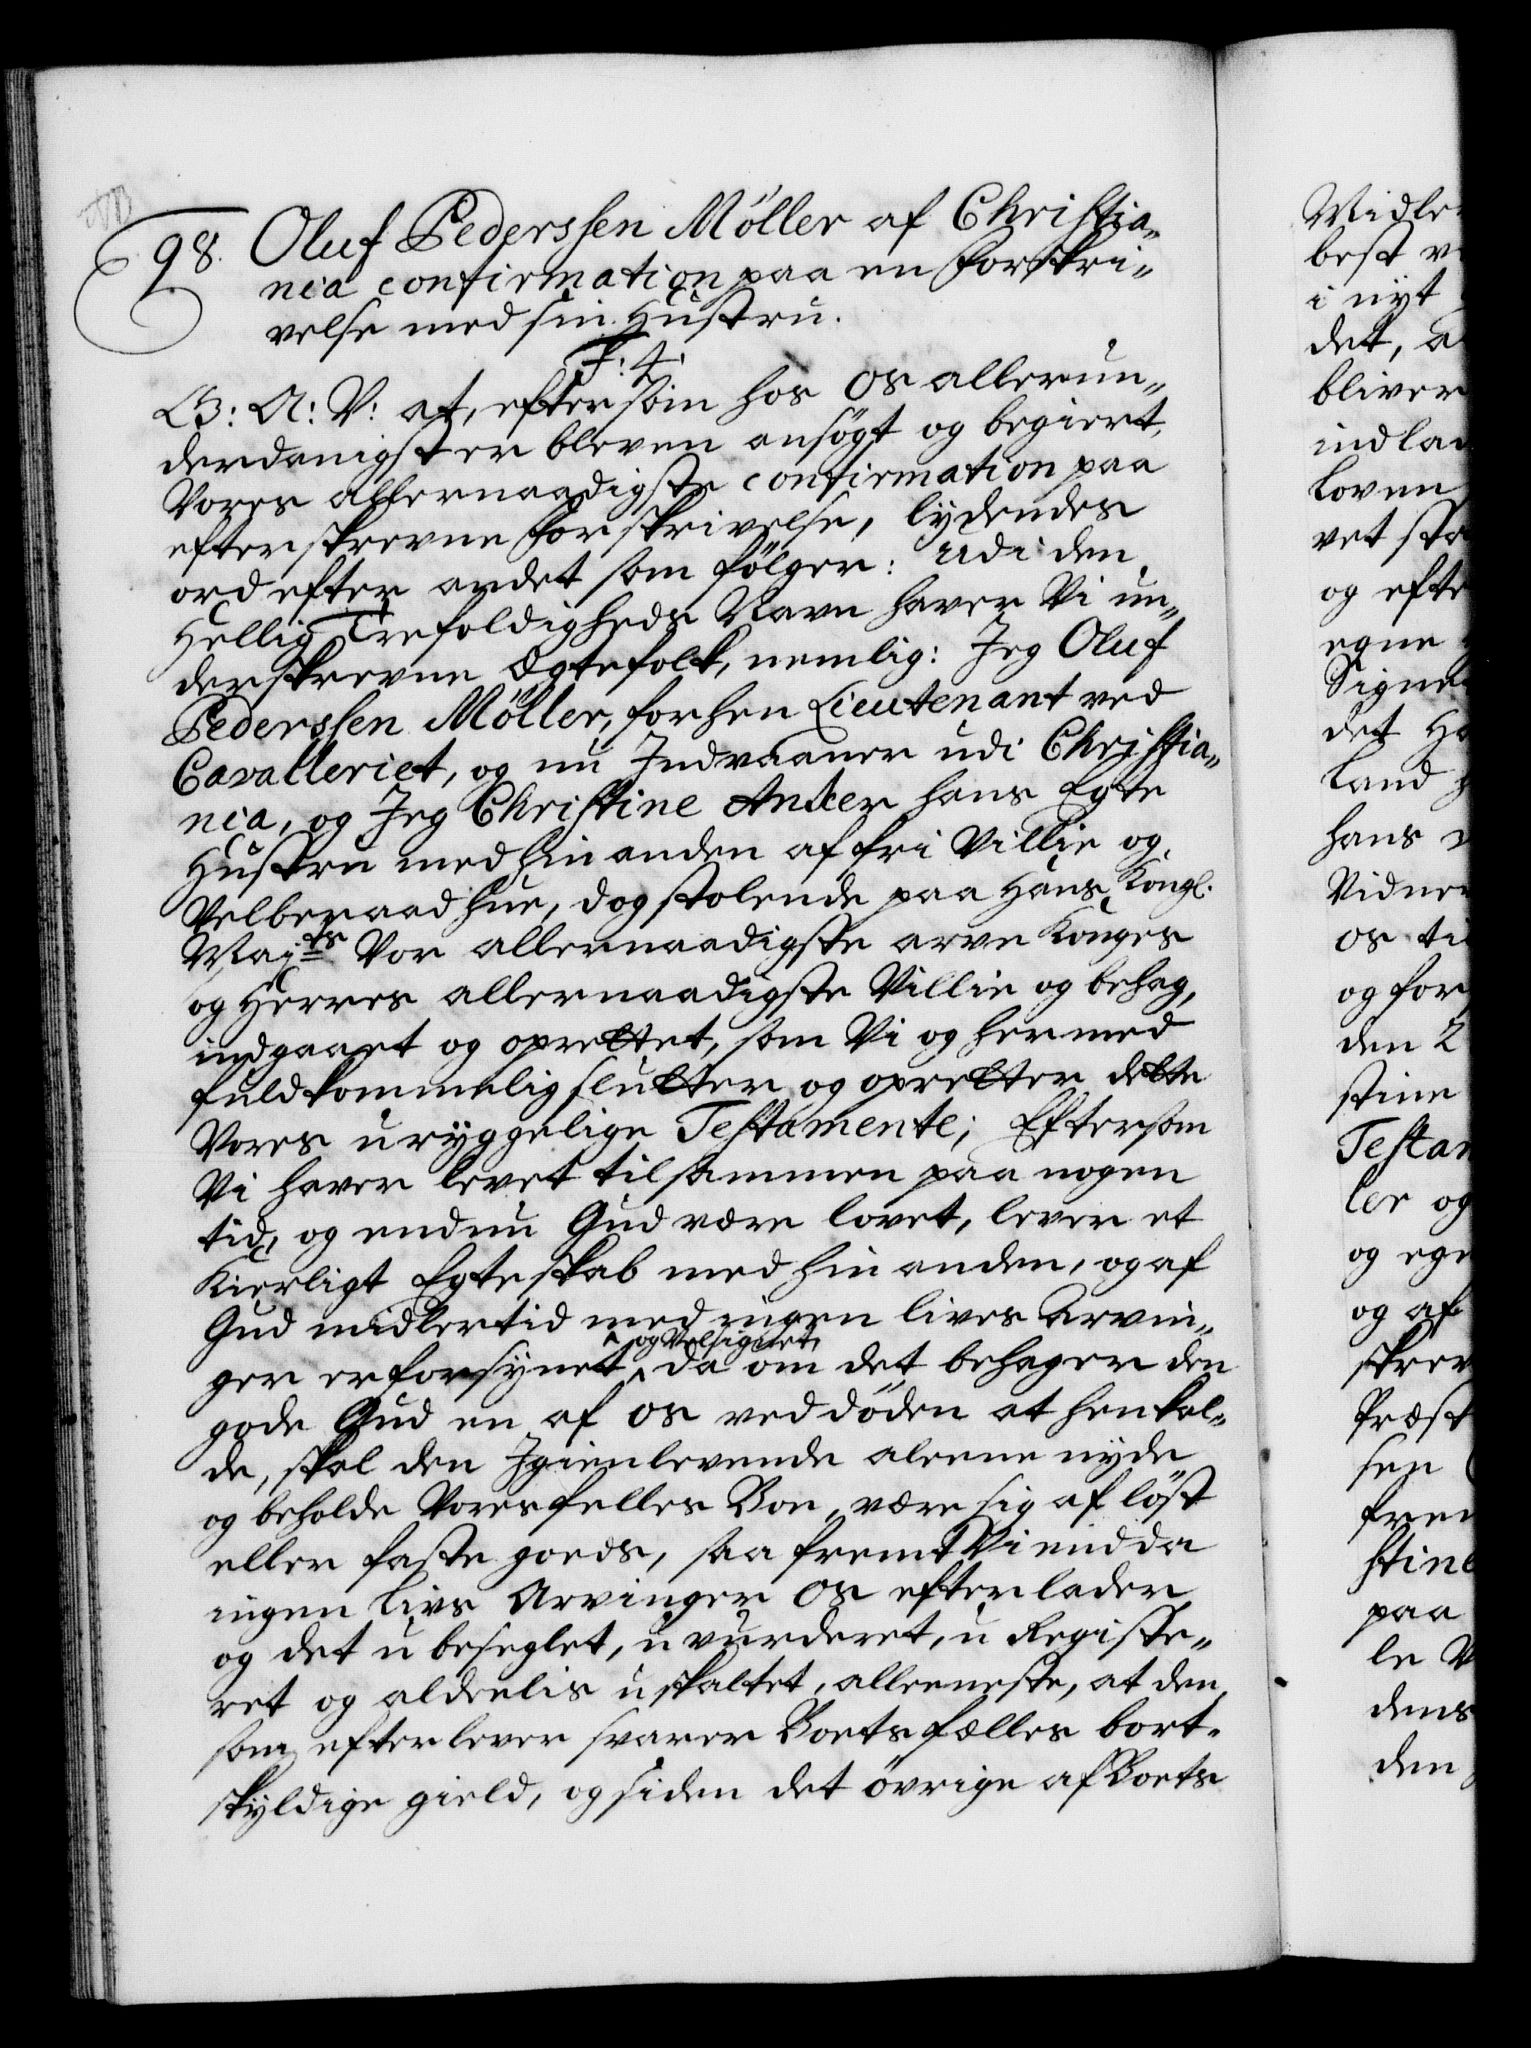 98. Oluf Pederssen Möller af Christia„
nia confirmation paa en forskri„
velse med sin Hustru.
F: 4.
G: A: V: at, eftersom hos Os allerun„
derdanigst er bleven ansögt og begiert,
Vores allernaadigste confirmation paa
efterskrevne forskrivelse, lydendes
ord efter andet som fölger: Udi den
Hellig Trefoldigheds Navn haver Vi un„
derskrevne Ægtefolk, nemlig: Jeg Oluf
Pederssen Möller, forhen Lieutenant ved
Cavalleriet, og nu Indvaaner udi Christia„
nia, og Jeg Christine Anker hans Egte
Hustru med hinanden af fri Villie og
Velberaad hue, dog stolende paa Hans Kongl.
Majts Vor allernaadigste arve Konges
og Herres allernaadigste Villie og behag,
indgaaet og oprettet, som Vi og hermed
fuldkommelig slutter og opretter dette
Vores uryggelige Testamente; Eftersom
Vi haver levet tilsammen paa nogen
tid, og endnu Gud være lovet, lever et
Kierligt Egteskab med hinanden, og af
Gud midlertid med ingen lives Arvin„
og Velsignet,
ger er forsynet da om det behager den
gode Gud en af os ved döden at henkal„
de, skal den Igienlevende aleene nyde
og beholde Vores felles Boe, være sig af löst
eller faste goeds, saa fremt Vi endda
ingen Livs Arvinger Os efterlader,
og det u beseglet, u vurderet, u Registe„
ret og aldeelis u skaltet, alleeneste, at den
som efterlever svarer Boets fælles bort„
skyldige gield, og siden det övrige af Boets
Midle
best
i nyt
det, a
bliver
indla
Loven
vet
og efte
egne
Signe
det
Land
hans
Vidner
os ti
og for
den 2
stine
Testam
ler og
og ege
og af
skrev
Præst
sen
frem
stine
paa
le
dens
den